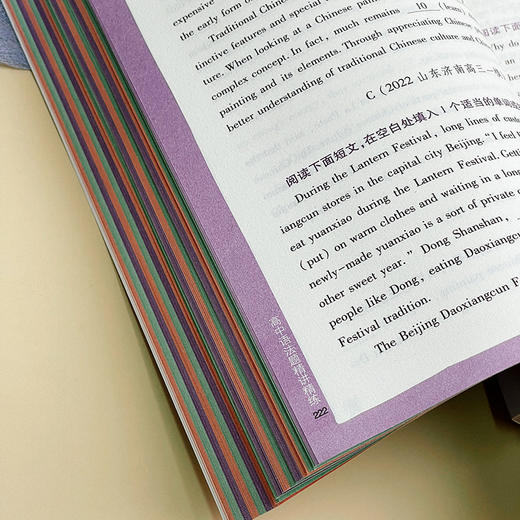 expensive
the early form o
Traditional Chinese
tinctive features and special
ture. When looking at a Chinese pain
complex concept. In fact, much remains 10 (learn)
painting and its elements. Through appreciating Chinese
better understanding of traditional Chinese culture and
C (2022 山东济南高三一模
阅读下面短文,在空白处填入1个适当的单词或
During the Lantern Festival, long lines of custo
iangcun stores in the capital city Beijing. "I feel
eat yuanxiao during the Lantern Festival. Getti
(put) on warm clothes and waiting in a long
newly-made yuanxiao is a sort of private
other sweet year." Dong Shanshan,
people like Dong, eating Daoxiangcun
Festival tradition.
The Beijing Daoxiangcun F
高中语法题精讲精练
222
阅读下面